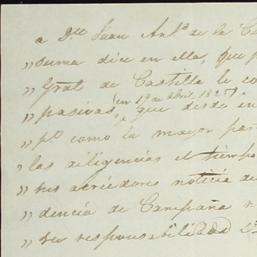 a Dn. Juan Anto. de la C
" suma dice en ella, que p
" Gral de Castilla le co
(en 19 de abril 1825)
" pasivas, que desde en
" po. como la mayor par
" las diligencias el tiempo
" sus acreedores noticia de
" dencia de Campaña
" su responsabilidad